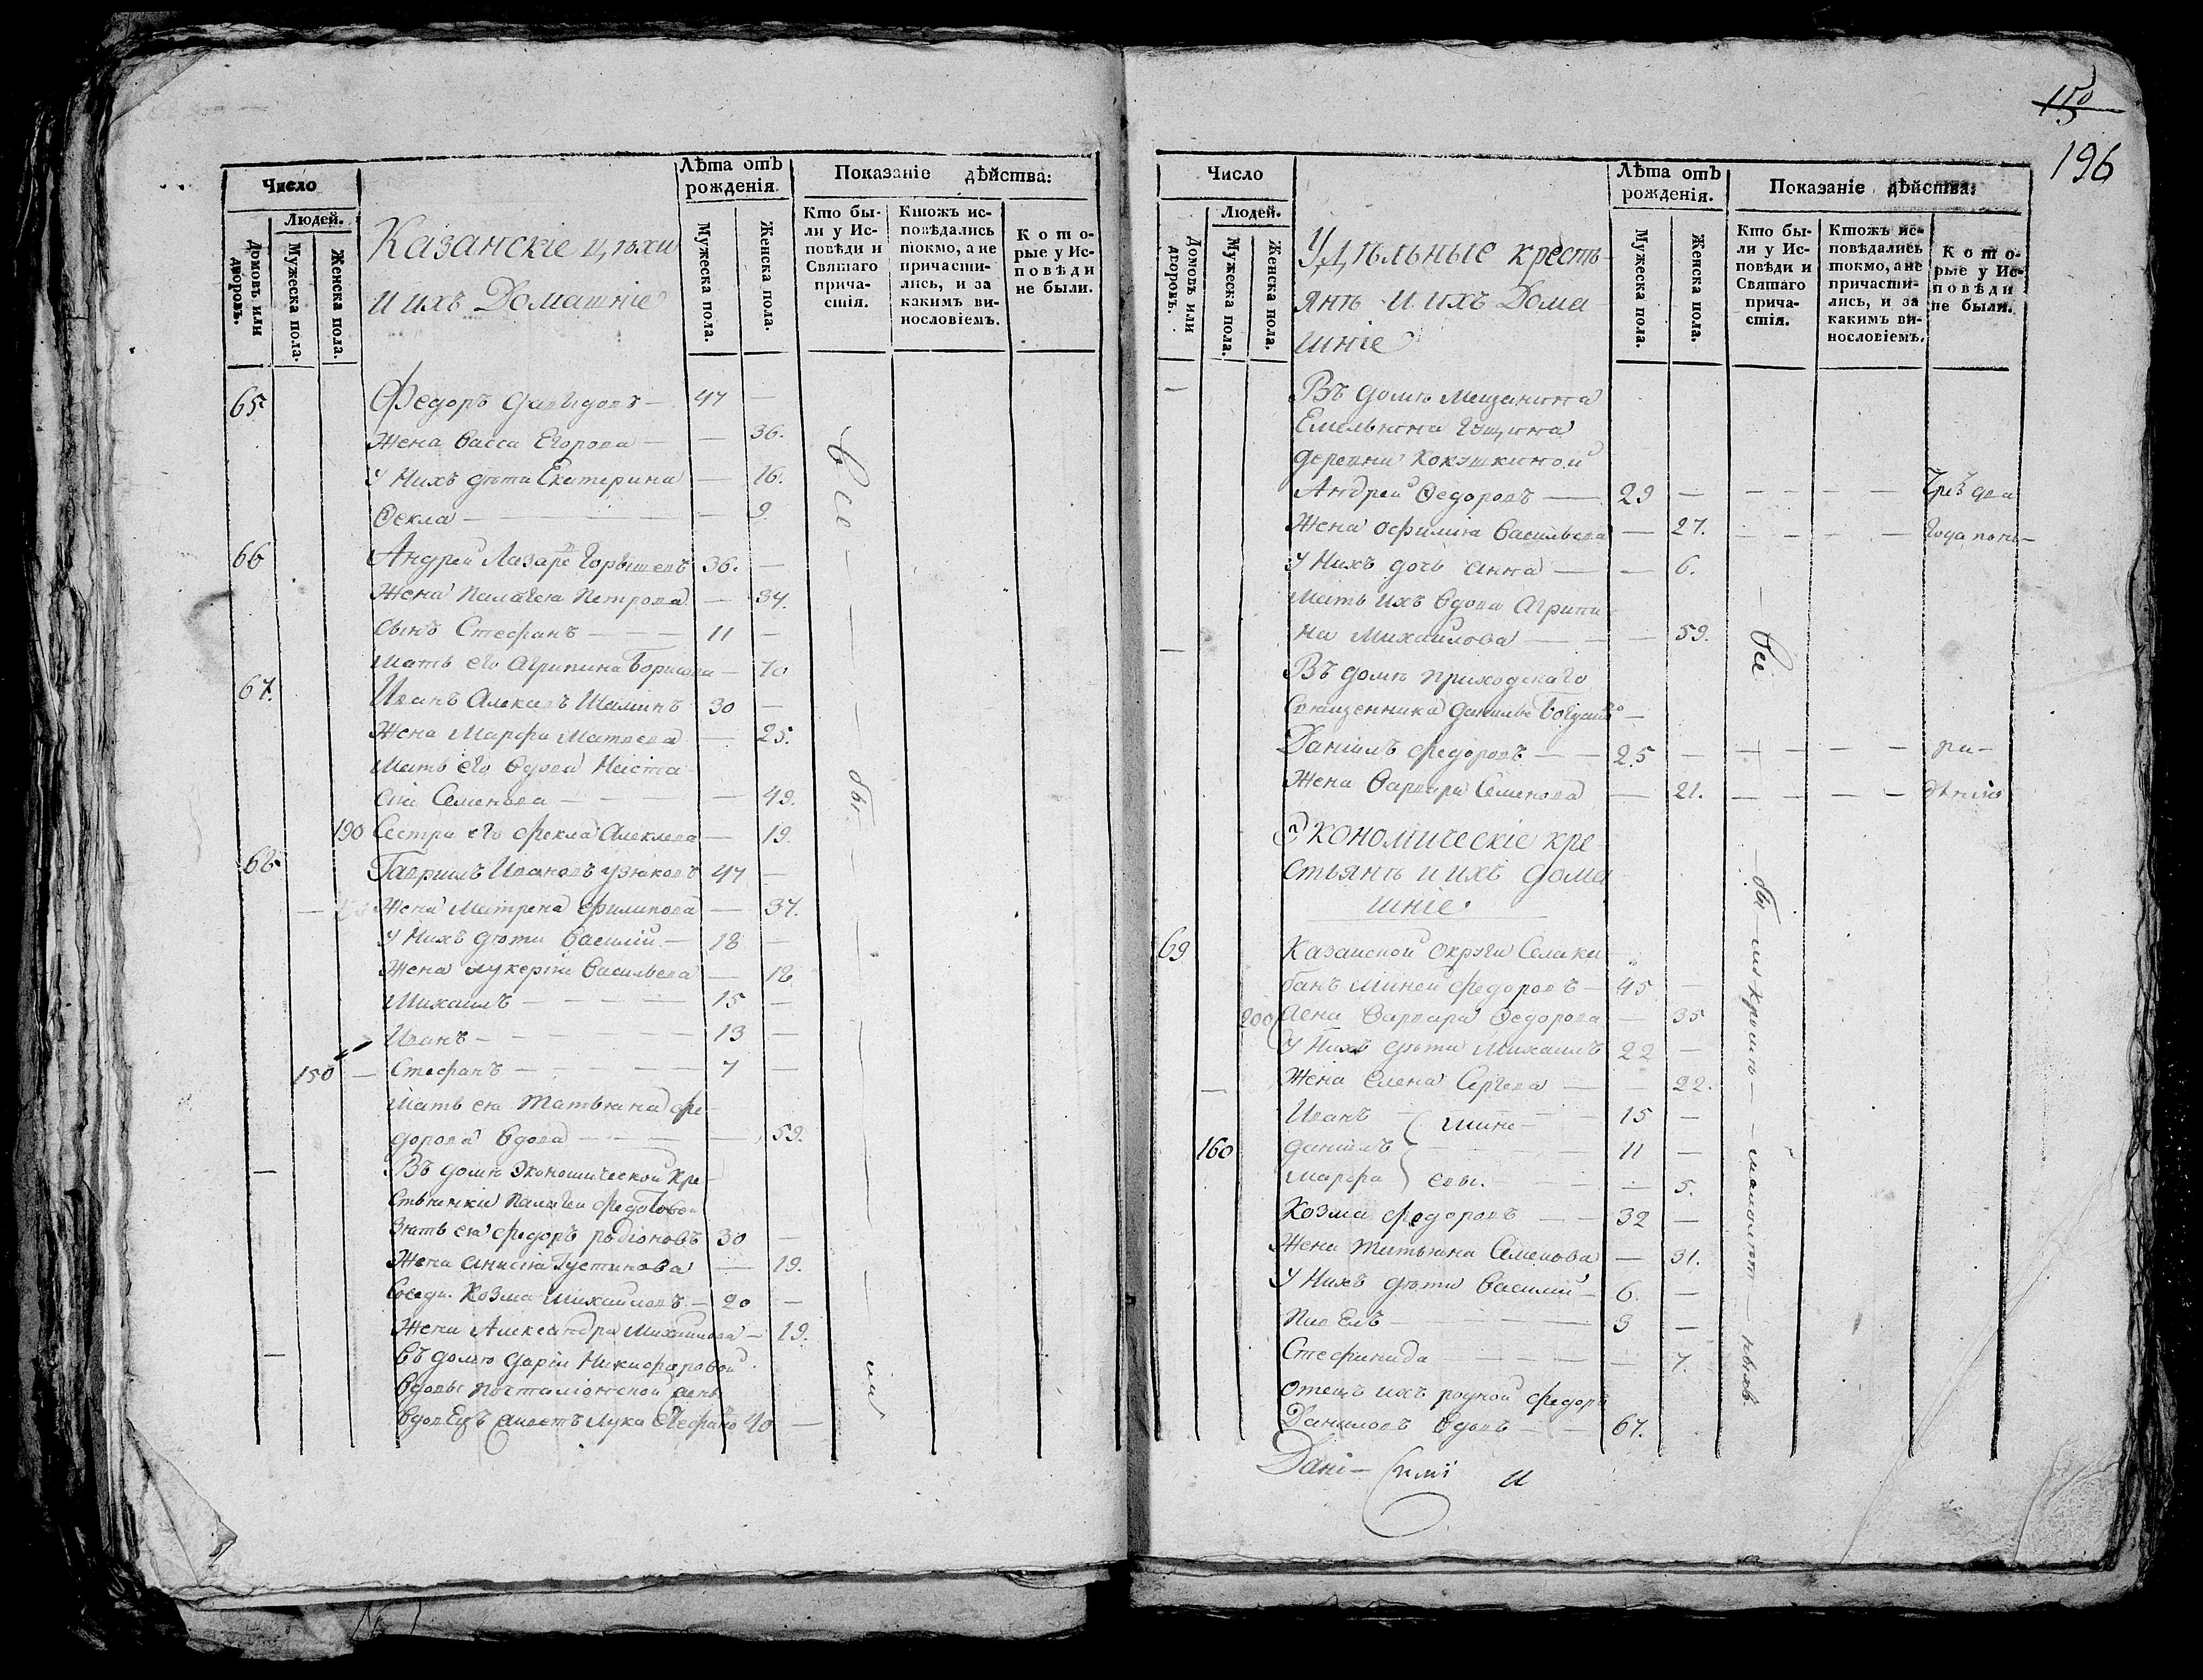 Число
Людей.
Домовъ или дворовъ.
Мужеска пола.
Женска пола.
Казанскіе цѣхи
и ихъ Домашніе
Лѣта отъ рожденія.
Мужеска пола.
Женска пола.
Показаніе дѣйства:
Кто были у Исповѣди и Святаго причастія.
Ктожъ исповѣдались токмо, а не причастились, и за какимъ винословіемъ.
Которые у Исповѣди не были.
65 Федоръ Давидовъ — 47 —
Жена Васса Егорова — — 36.
У Нихъ дѣти Екатерина — 16.
Ѳекла — — 9.
66 Андрей Лазаре 36. —
Жена Палагея Петрова — 34.
сынъ Стефанъ — 11 —
Мать его Агрипина Борисова — 70
67. Иванъ Алексѣевъ Шаминъ 30 —
Жена Марфа Матвева — 25.
Мать его вдова Наста
сия Семенова — — 49.
190 Сестра его Фекла Алексеева — 19.
68 Гаврилъ Ивановъ Узяковъ 47 —
Жена Матрена Филипова — 37.
У Нихъ дѣти Василій — 18 —
Жена Лукерія Васильева — 18
Михаилъ — 15 —
Иванъ — 13 —
150 — Стефанъ — 7 —
Мать ея Татьяна Фе
дорова вдова — — 59.
— Въ домѣ Экономической Кре
стьянки Палагеи Федотовой
Зять ея Федоръ Родіоновъ 30 —
Жена Анисія Густинова — 19.
Козма Михайловъ — 20 —
Жена Александра Михайлова — 19.
— въ домѣ Дарьи Никифоровой
вдовы почталіонской жены
вдовецъ Лука Стефано 40 —
все — бы — ли
150
196
Число
Людей.
Домовъ или дворовъ.
Мужеска пола.
Женска пола.
Удѣльные кресть
янѣ и ихъ Дома
шніе
Лѣта отъ рожденія.
Мужеска пола.
Женска пола.
Показаніе дѣйства:
Кто были у Исповѣди и Святаго причастія.
Ктожъ исповѣдались токмо, а не причастились, и за какимъ винословіемъ.
Которые у Исповѣди не были.
— Въ домѣ Мещанина
Емельяна Гущина
деревни Кокушкиной
Андрей Ѳедоровъ — 29 — — — — — Чрезъ два
Жена Офимія Васильева — 27. — — — — года по не—
У Нихъ дочь Анна — — 6.
Мать ихъ вдова Агрипи
на Михайлова — — 59.
— Въ домѣ приходскаго
Священника Данилы —
Даніилъ Федоровъ — 25 — — — — ра—
Жена Варвара Семенова — 21. — — — — дѣнію
Экономическіе кре
стьянѣ и ихъ дома
шніе
69 Казанской округи Села Ка
банъ Миней Федоровъ — 45 —
200 Жена Варвара Ѳедорова — 35
У Нихъ дѣти Михаилъ 22 —
Жена Елена Сергева — — 22.
Иванъ — Мине — 15 —
160 Даніилъ — 11 —
Марфа евы. — — 5.
Козма Федоровъ — 32 —
Жена Татьяна Семенова — 31.
У Нихъ дѣти Василій — 6. —
Павелъ — 3 —
Стефанида — — 7.
Отецъ ихъ родной Федоръ
Даниловъ вдовъ — 67.
— все — бы — ли — кромѣ — — малолѣт — нихъ.